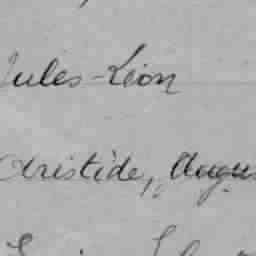 Jules-Léon
Aristide, Augus